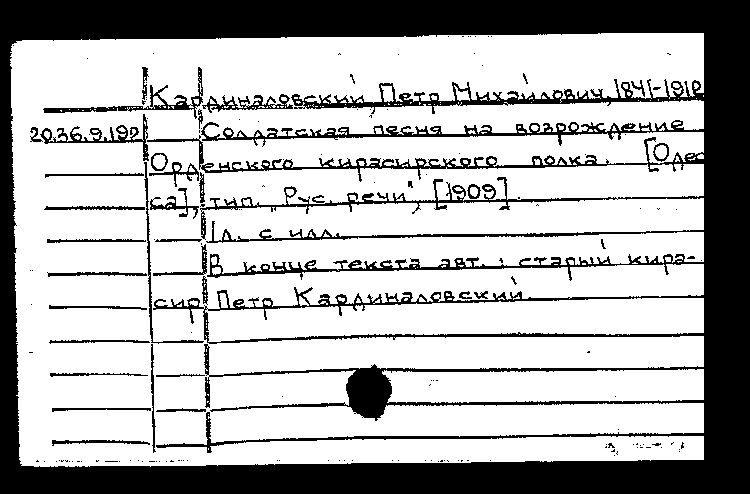 Кардиналовский, Петр Михайлович, 1841-1910
20.36.9.192 Солдатская песня на возрождение
Орденского кирасирского полка. [Одес
са], тип. "Рус. речи", [1909]
1л. с илл.
В конце текста авт.: старый кира-
сир Петр Кардиналовский.